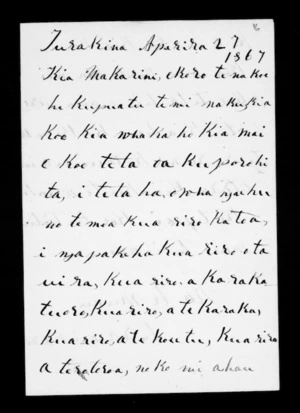 Turakina Aperira 27
1867
Kia Makarini, ekoro tena koe
he kupu atu tenei naku kia
koe kia whaka ho kia mai
e koe te ta oa ku porohi
ta, i te ta ha, o wha nguhu
no te mea kua riro katoa,
i nga pakeha kua riro ota
ui ra, kua riro. a karaka
tuoro, kua riro, a te karaka,
kua riro, a te koutu, kua riro
a terotoroa, no ko nei ahau